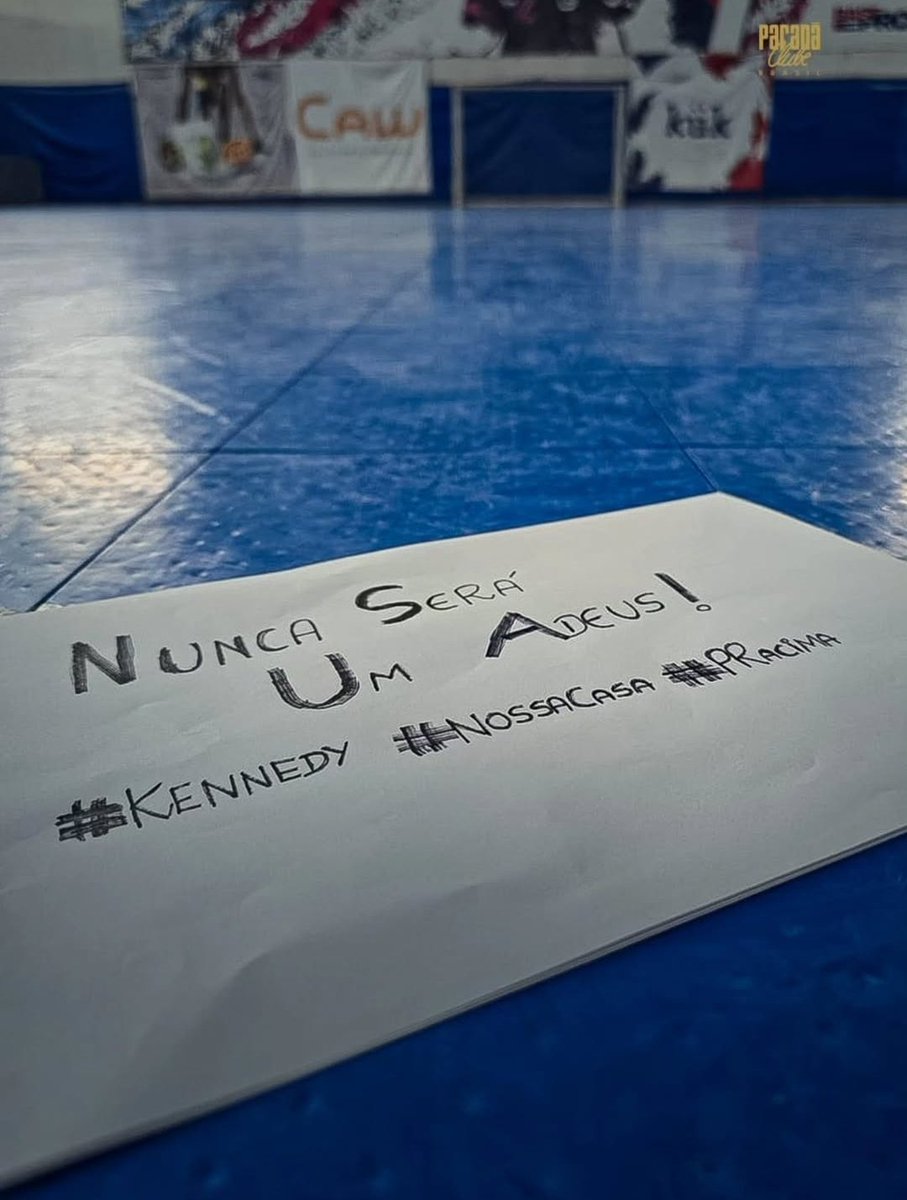 Paraná
Clube
BRASIL
CAW
k&k
NUNCA SERÁ
UM ADEUS!
#KENNEDY #NOSSACASA #PRACIMA